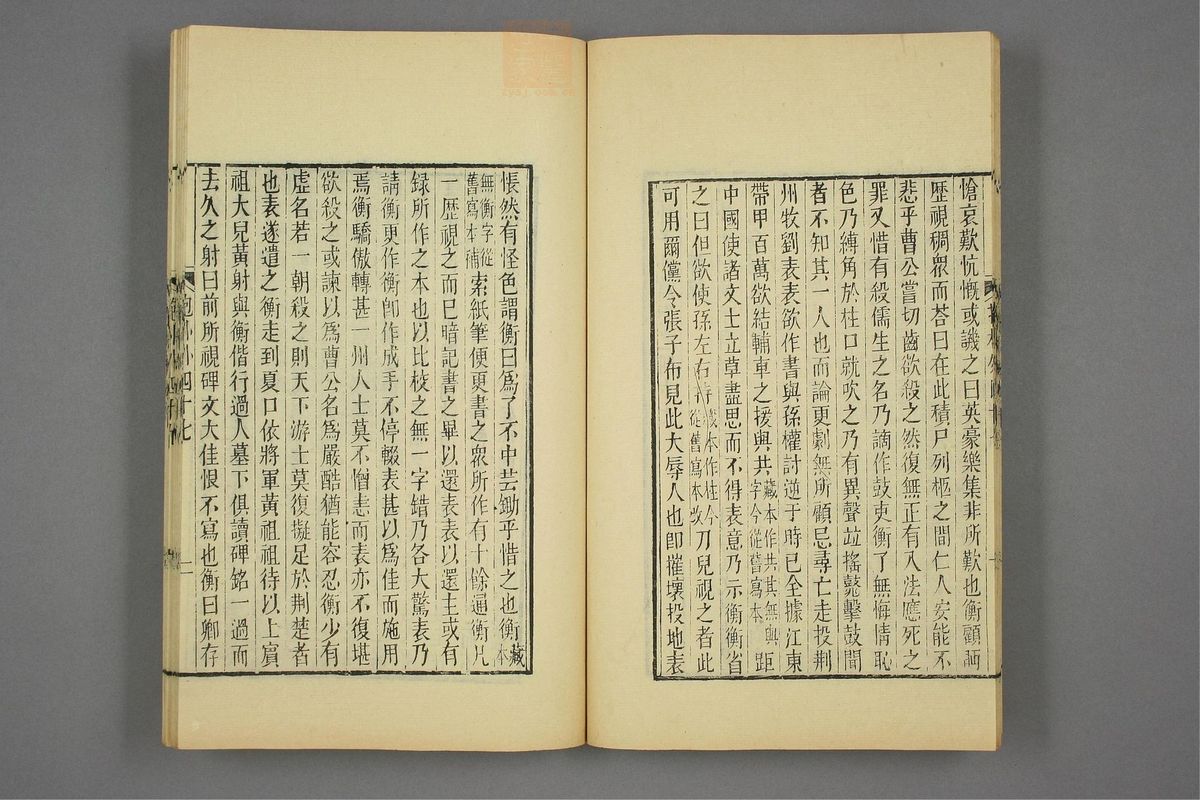 愴哀歎忼慨或譏之曰英豪樂集非所歎也衡顧眄
歷視稠衆而荅曰在此積尸列柩之間仁人安能不
悲乎曹公嘗切齒欲殺之然復無正有入法應死之
罪又惜有殺儒生之名乃謫作鼓吏衡了無悔情恥
色乃縛角於柱口就吹之乃有異聲並搖鼗擊鼓聞
者不知其一人也而論更劇無所顧忌尋亡走投荆
州牧劉表表欲作書與孫權討逆于時已全據江東
帶甲百萬欲結輔車之援與共藏本作共其無與字今從舊寫本距
中國使諸文士立草盡思而不得表意乃示衡衡省
之曰但欲使孫左右持藏本作柱今從舊寫本改刀兒視之者此
可用爾儻令張子布見此大辱人也卽摧壞投地表
悵然有怪色謂衡曰爲了不中芸鋤乎惜之也衡藏本
無衡字從舊寫本補索紙筆便更書之衆所作有十餘通衡凡
一歷視之而已暗記書之畢以還表表以還主或有
録所作之本也以比校之無一字錯乃各大驚表乃
請衡更作衡卽作成手不停輟表甚以爲佳而施用
焉衡驕傲轉甚一州人士莫不憎恚而表亦不復堪
欲殺之或諫以爲曹公名爲嚴酷猶能容忍衡少有
虛名若一朝殺之則天下游士莫復擬足於荆楚者
也表遂遣之衡走到夏口依將軍黃祖祖待以上賓
祖大兒黃射與衡偕行過人墓下俱讀碑銘一過而
去久之射曰前所視碑文大佳恨不寫也衡曰卿存
抱外四十七
二